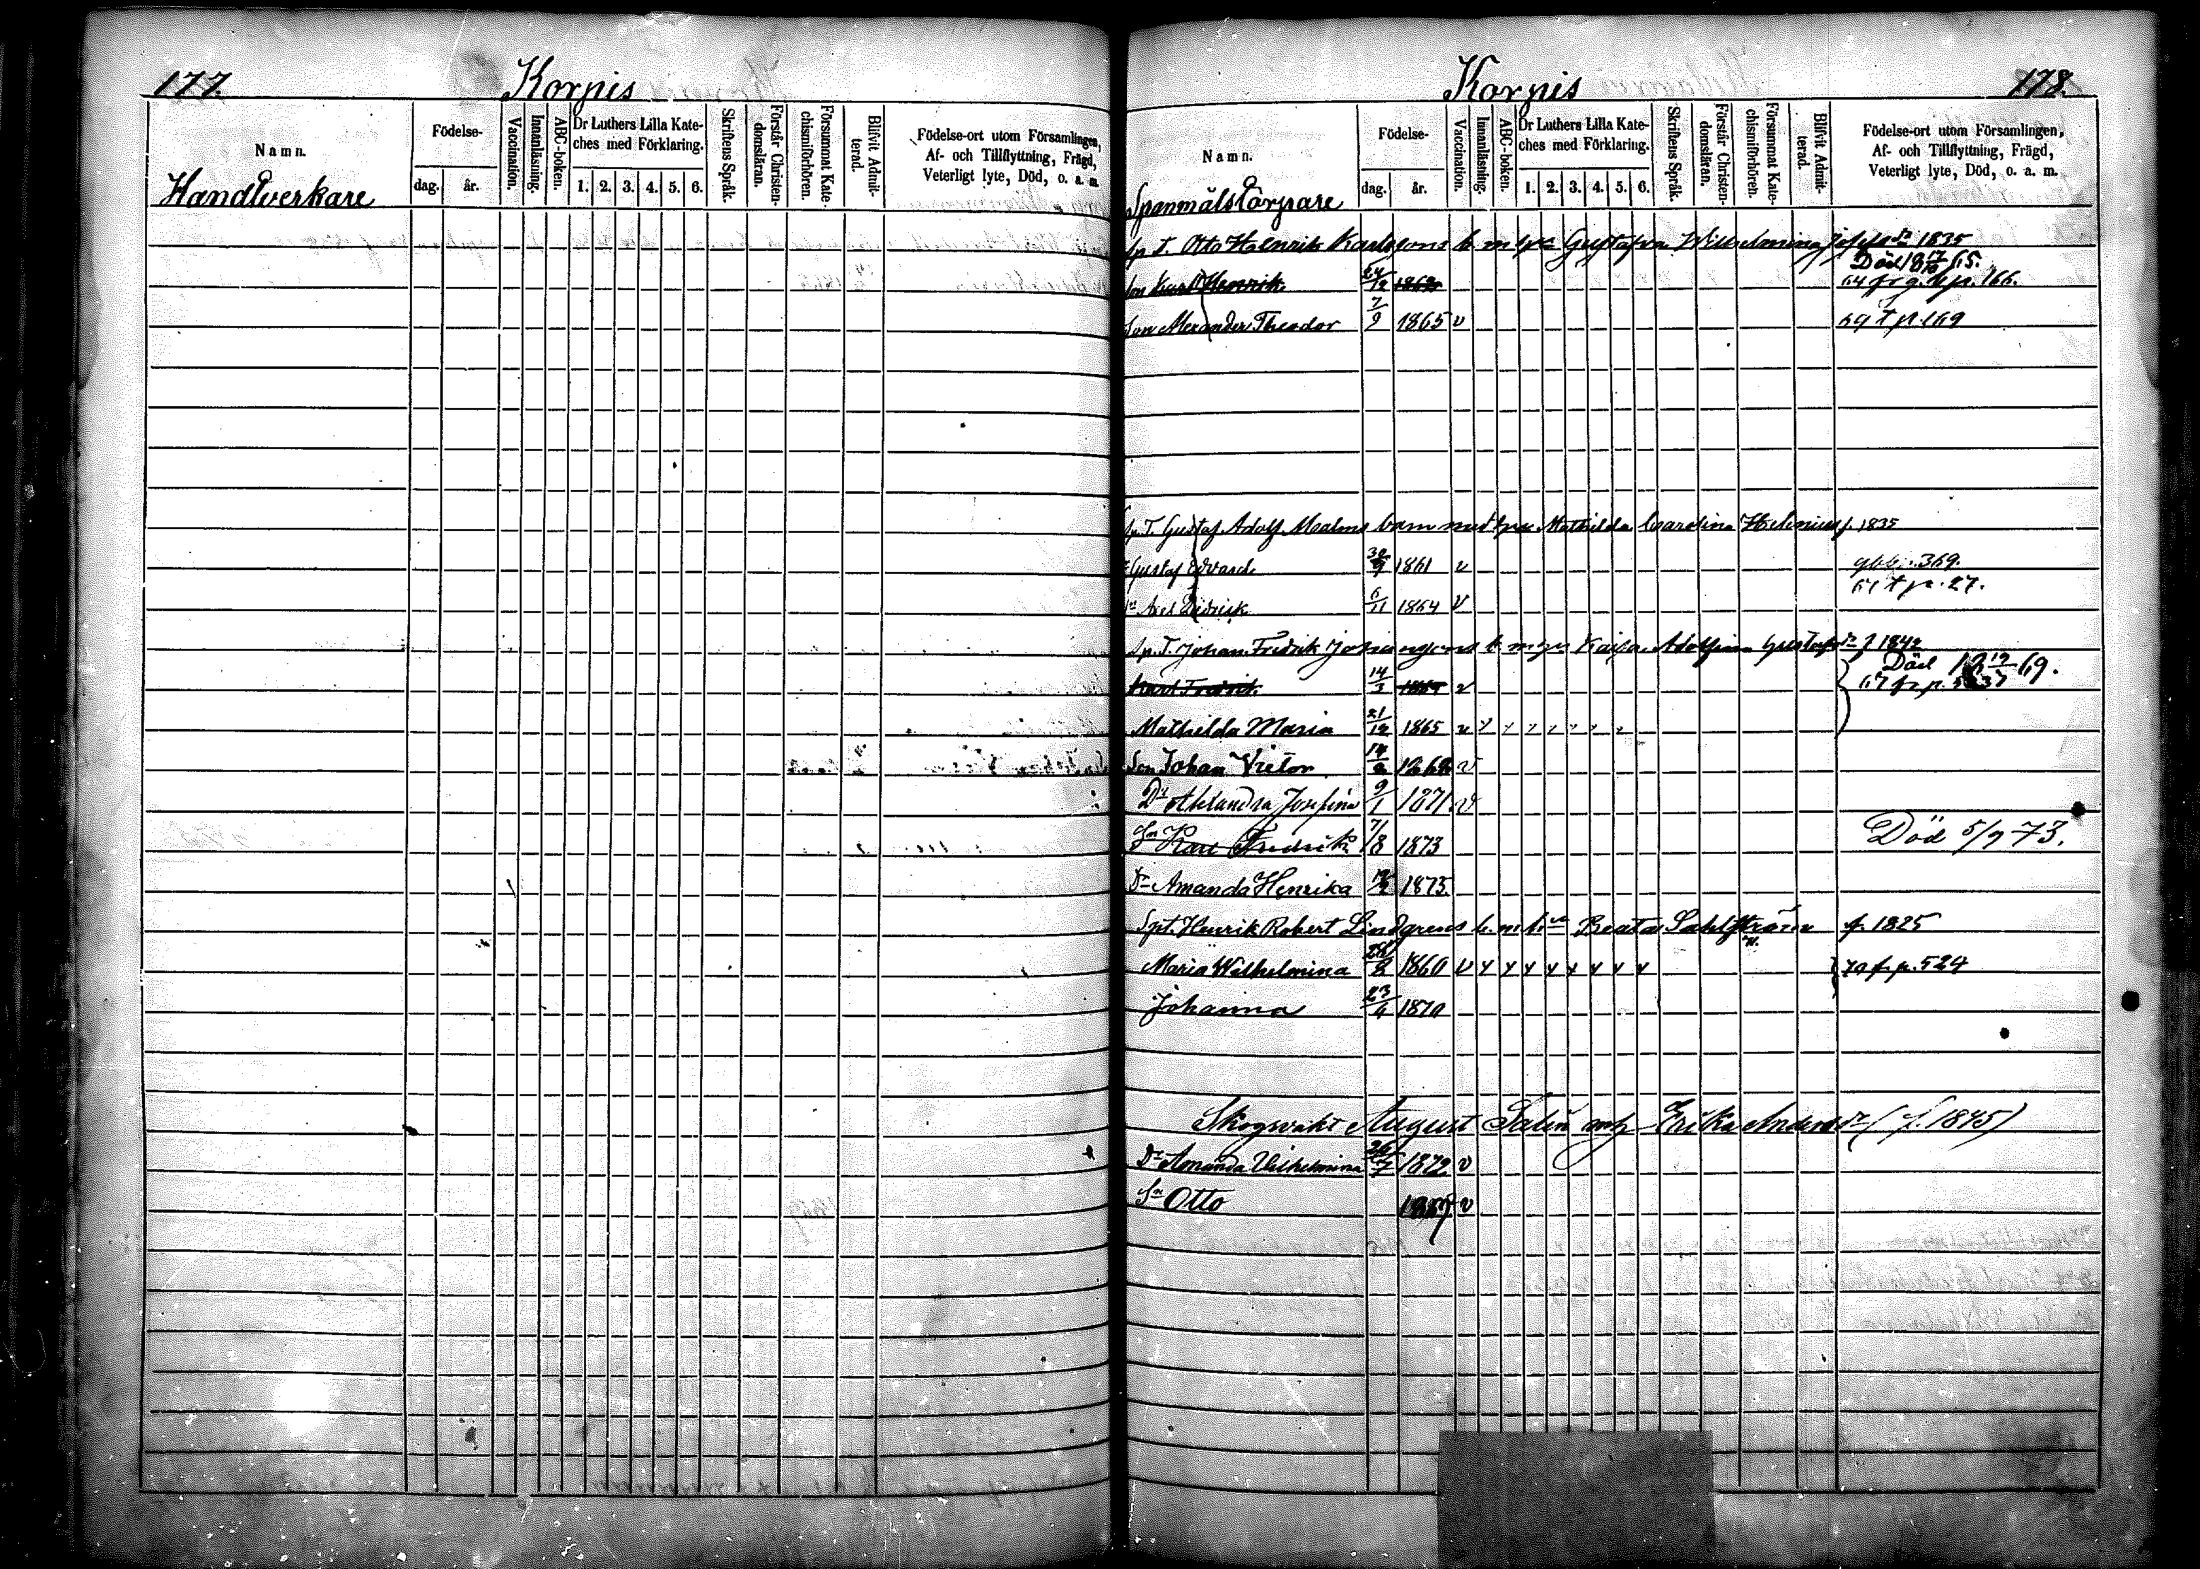 177.
Korpis
Namn.
Födelse-
dag.
år.
Vaccination.
Innanläsning.
ABC-boken.
Dr Luthers Lilla Kate-
ches med Förklaring.
1. 2. 3. 4. 5. 6.
Skriftens Språk.
Förstår Christen-
domsläran.
Försummat Kate-
chismiförhören.
Blifvit Admit-
terad.
Födelse-ort utom Församlingen,
Af- och Tillflyttning, Frägd,
Veterligt lyte, Död, o. a. m.
Handtverkare
Korpis
178.
Namn.
Födelse-
dag.
år.
Vaccination.
Innanläsning.
ABC-boken.
Dr Luthers Lilla Kate-
ches med Förklaring.
1. 2. 3. 4. 5. 6.
Skriftens Språk.
Förstår Christen-
domsläran.
Försummat Kate-
chismiförhören.
Blifvit Admit-
terad.
Födelse-ort utom Församlingen,
Af- och Tillflyttning, Frägd,
Veterligt lyte, Död, o. a. m.
Spanmålstorpare
Sp. T. Otto Henrik Karlssons b. m. Gustafva Wilhelmina 1835
Son Karl Henrik 1862 Död 18 17/10 65. 64 fr. p. 166.
Son Alexander Theodor 7/9 1865 v 69 t p. 169
Sp. T. Gustaf Adolf Malms barn med Mathilda Carolina Helenius f. 1835
Gustaf Edvard 30/9 1861 v 369.
Axel Didrik 6/11 1864 v t p. 27.
Sp. T. Johan Fredrik b. m. Kaisa Adolfina f 1842
Karl Fredrik 14/3 v Död 19/12 69.
Mathilda Maria 21/12 1865 v
Son Johan Victor v
Dr Josefina 9/1 1871 v
Sn Karl Fredrik 7/8 1873 Död 5/9 73.
Dr Amanda Henrika 1875.
Spt. Henrik Robert Lindgrens b. m. h. Beata f. 1825
Maria Wilhelmina 1860 v 70 fr. p. 524
Johanna 23/4 1870
Skogwakt August Salin Erika Anders dr (f. 1845)
Dr Amanda Vilhelmina 26/7 1872 v
Sn Otto v